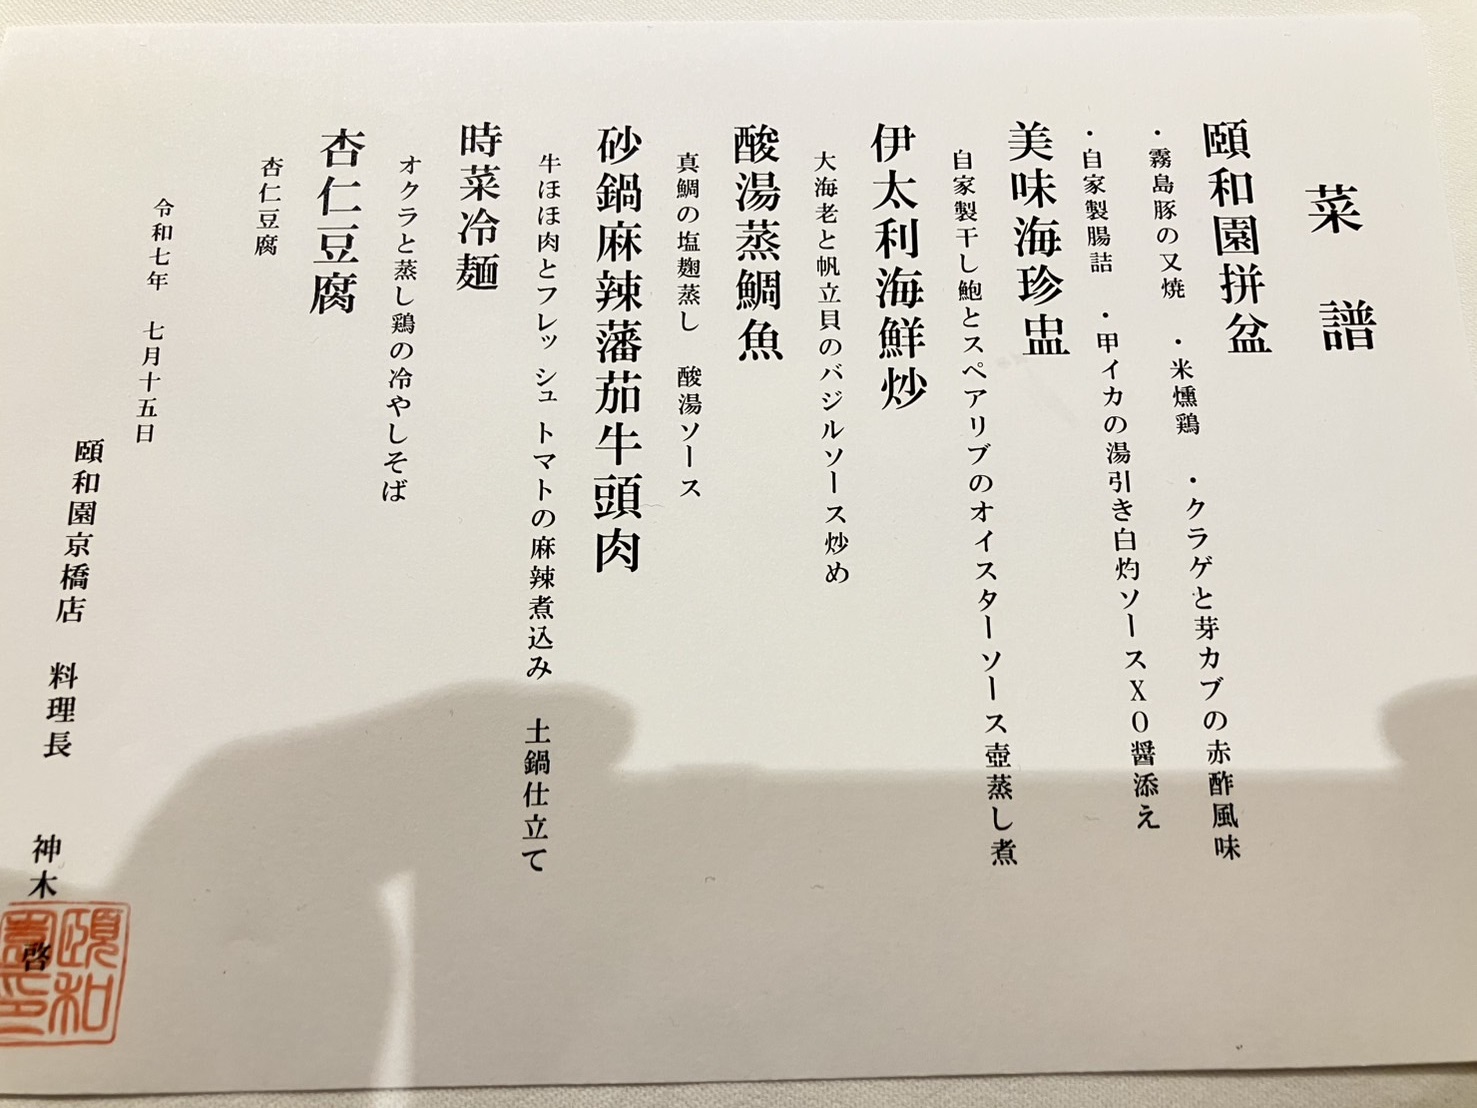 菜譜
頤和園拼盆
・霧島豚の叉焼　・米燻鶏　・クラゲと芽カブの赤酢風味
・自家製腸詰　・甲イカの湯引き白灼ソースＸＯ醤添え
美味海珍盅
自家製干し鮑とスペアリブのオイスターソース壺蒸し煮
伊太利海鮮炒
大海老と帆立貝のバジルソース炒め
酸湯蒸鯛魚
真鯛の塩麹蒸し　酸湯ソース
砂鍋麻辣藩茄牛頭肉
牛ほほ肉とフレッシュトマトの麻辣煮込み　土鍋仕立て
時菜冷麺
オクラと蒸し鶏の冷やしそば
杏仁豆腐
杏仁豆腐
令和七年　七月十五日
頤和園京橋店　料理長　神木　啓
頤和園印